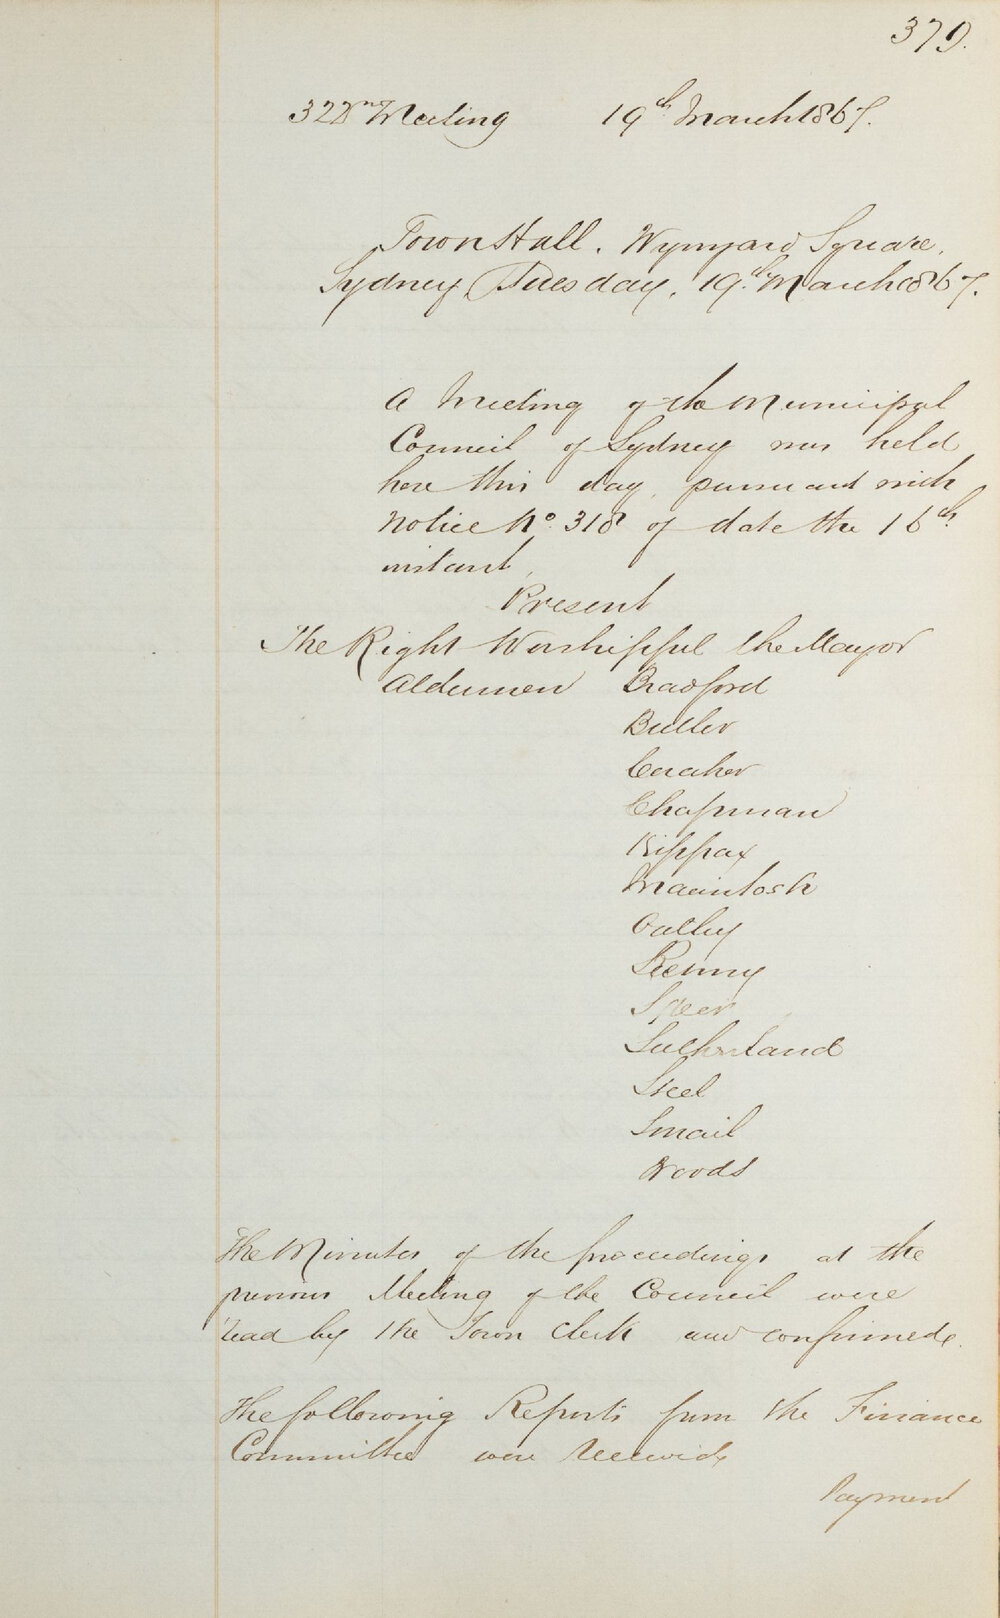 379.
322nd Meeting 19th March 1867.
Town Hall. Wynyard Square.
Sydney, Tuesday, 19th March 1867.
A Meeting of the Municipal
Council of Sydney was held
here this day, pursuant with
Notice No. 318 of date the 16th
instant,
Present
The Right Worshipful the Mayor
Aldermen Bradford
Butler
Caraher
Chapman
Kippax
Macintosh
Oatley
Renny
Speer
Sutherland
Steel
Smail
Woods
The Minutes of the proceedings at the
previous Meeting of the Council were
read by the Town Clerk and confirmed.
The following Reports from the Finance
Committee were Received,
Payment